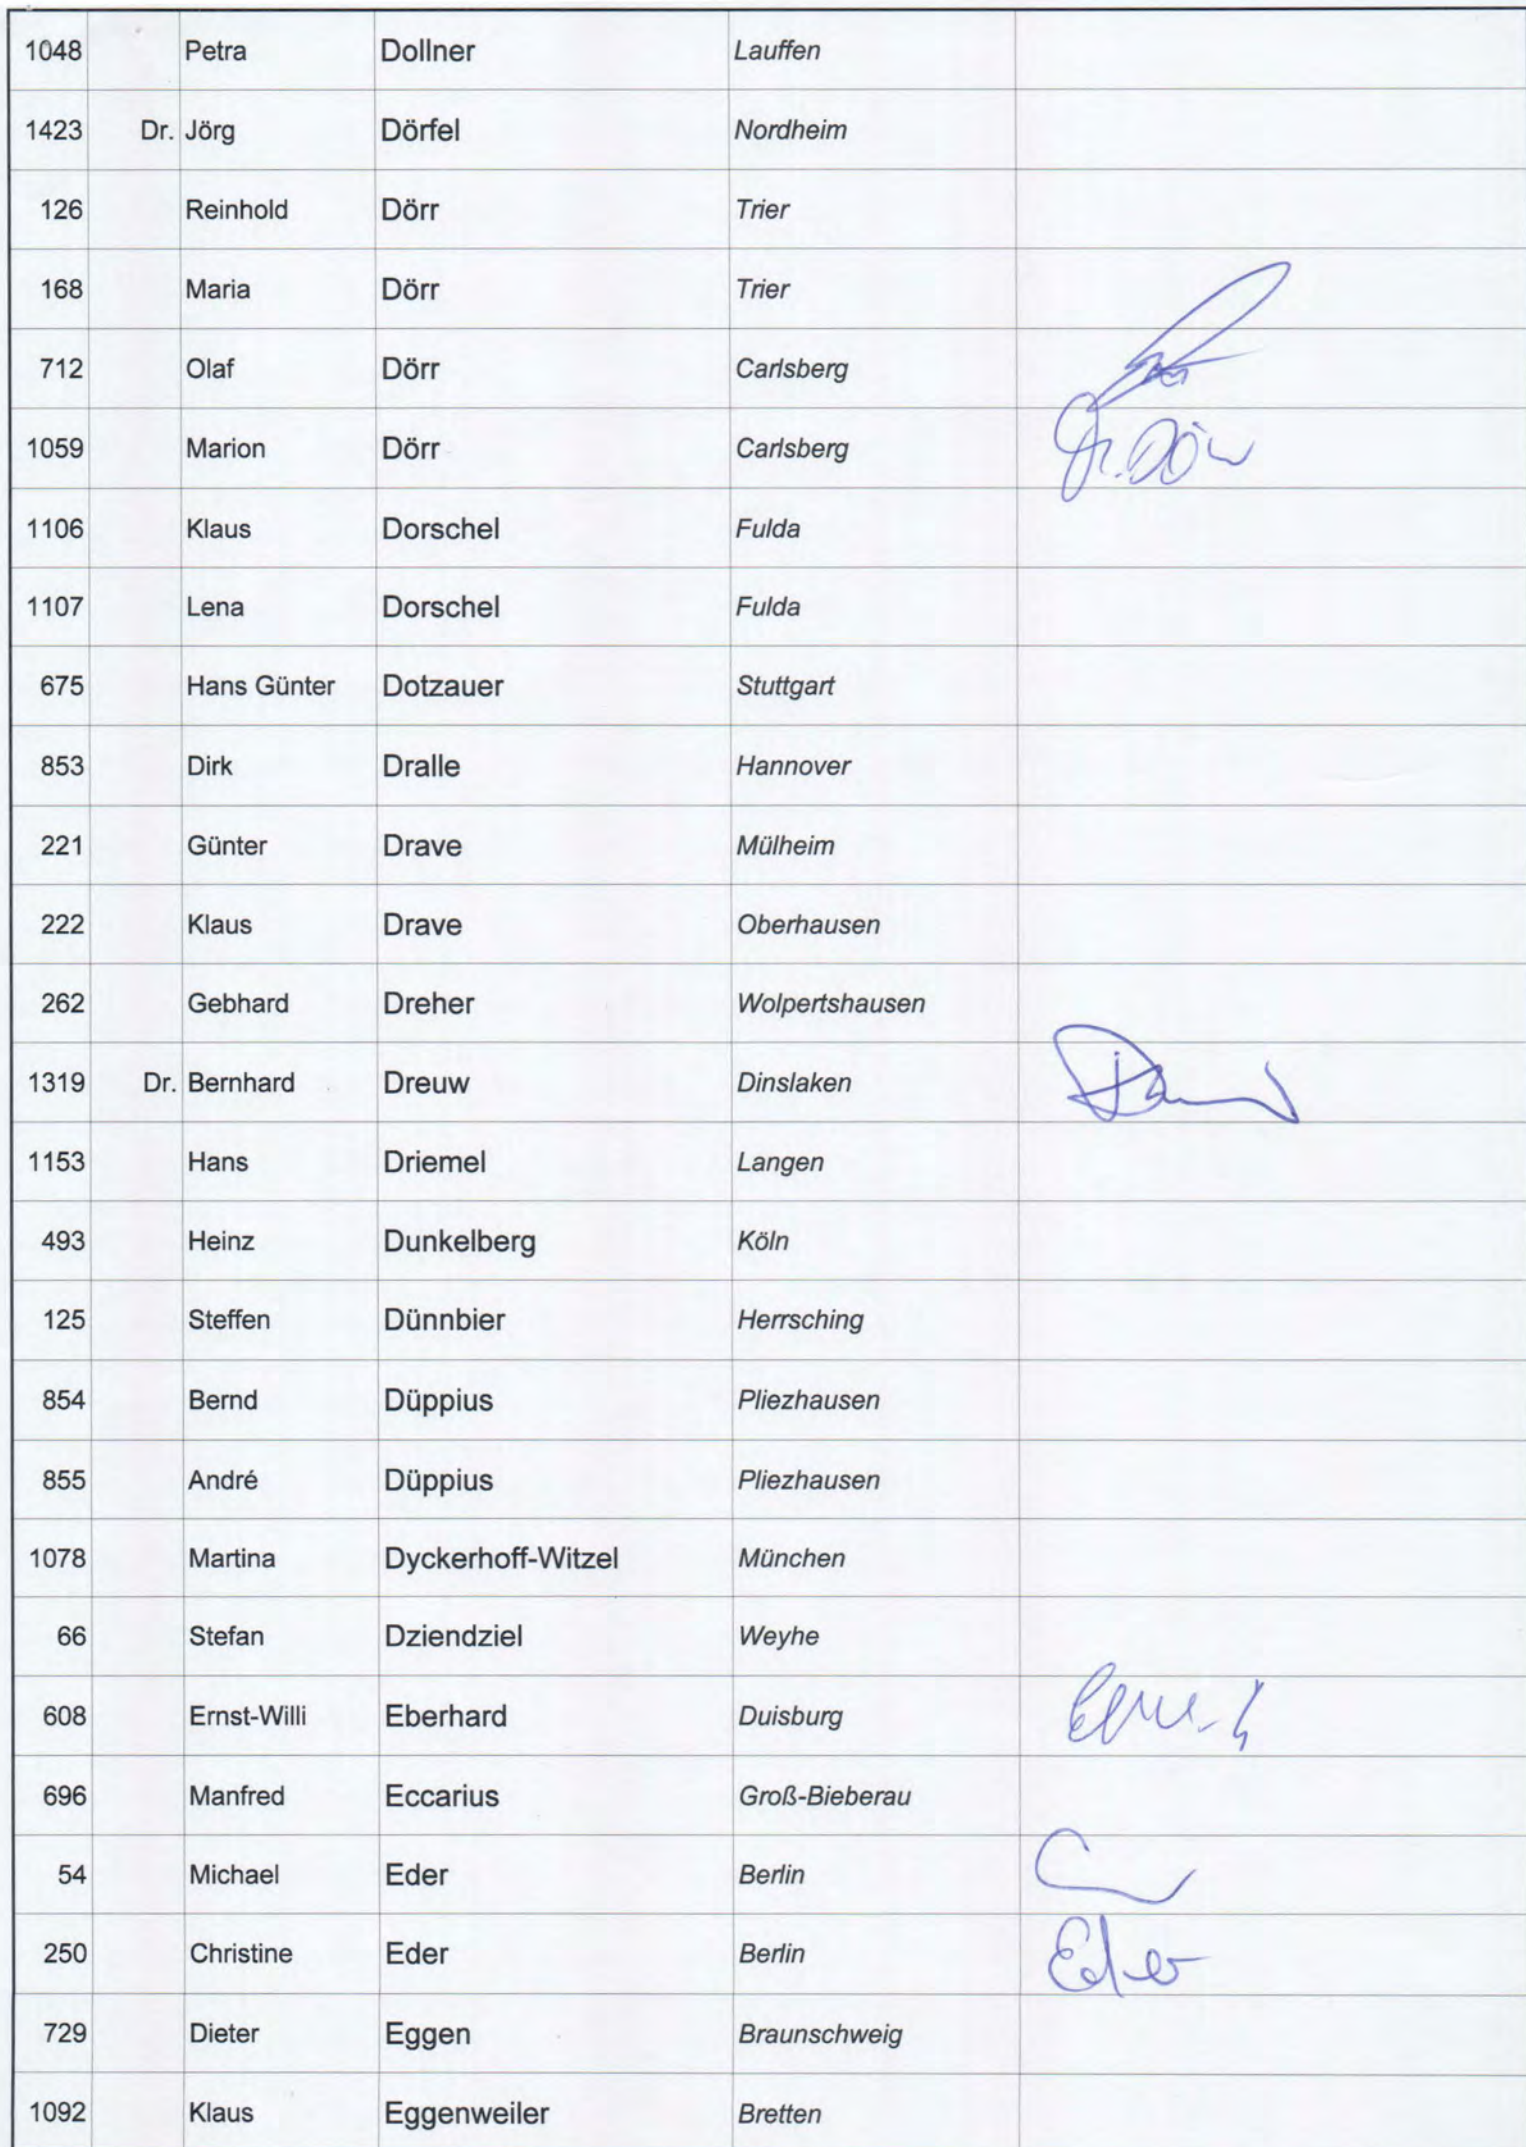 1048 Petra Dollner Lauffen
1423 Dr. Jörg Dörfel Nordheim
126 Reinhold Dörr Trier
168 Maria Dörr Trier
712 Olaf Dörr Carlsberg
1059 Marion Dörr Carlsberg
1106 Klaus Dorschel Fulda
1107 Lena Dorschel Fulda
675 Hans Günter Dotzauer Stuttgart
853 Dirk Dralle Hannover
221 Günter Drave Mülheim
222 Klaus Drave Oberhausen
262 Gebhard Dreher Wolpertshausen
1319 Dr. Bernhard Dreuw Dinslaken
1153 Hans Driemel Langen
493 Heinz Dunkelberg Köln
125 Steffen Dünnbier Herrsching
854 Bernd Düppius Pliezhausen
855 André Düppius Pliezhausen
1078 Martina Dyckerhoff-Witzel München
66 Stefan Dziendziel Weyhe
608 Ernst-Willi Eberhard Duisburg
696 Manfred Eccarius Groß-Bieberau
54 Michael Eder Berlin
250 Christine Eder Berlin Eder
729 Dieter Eggen Braunschweig
1092 Klaus Eggenweiler Bretten